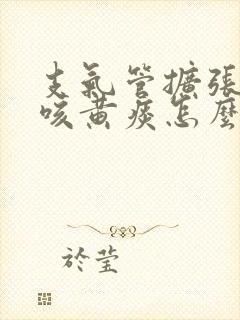 支氣管擴張
咳黃痰怎麼
於瑩